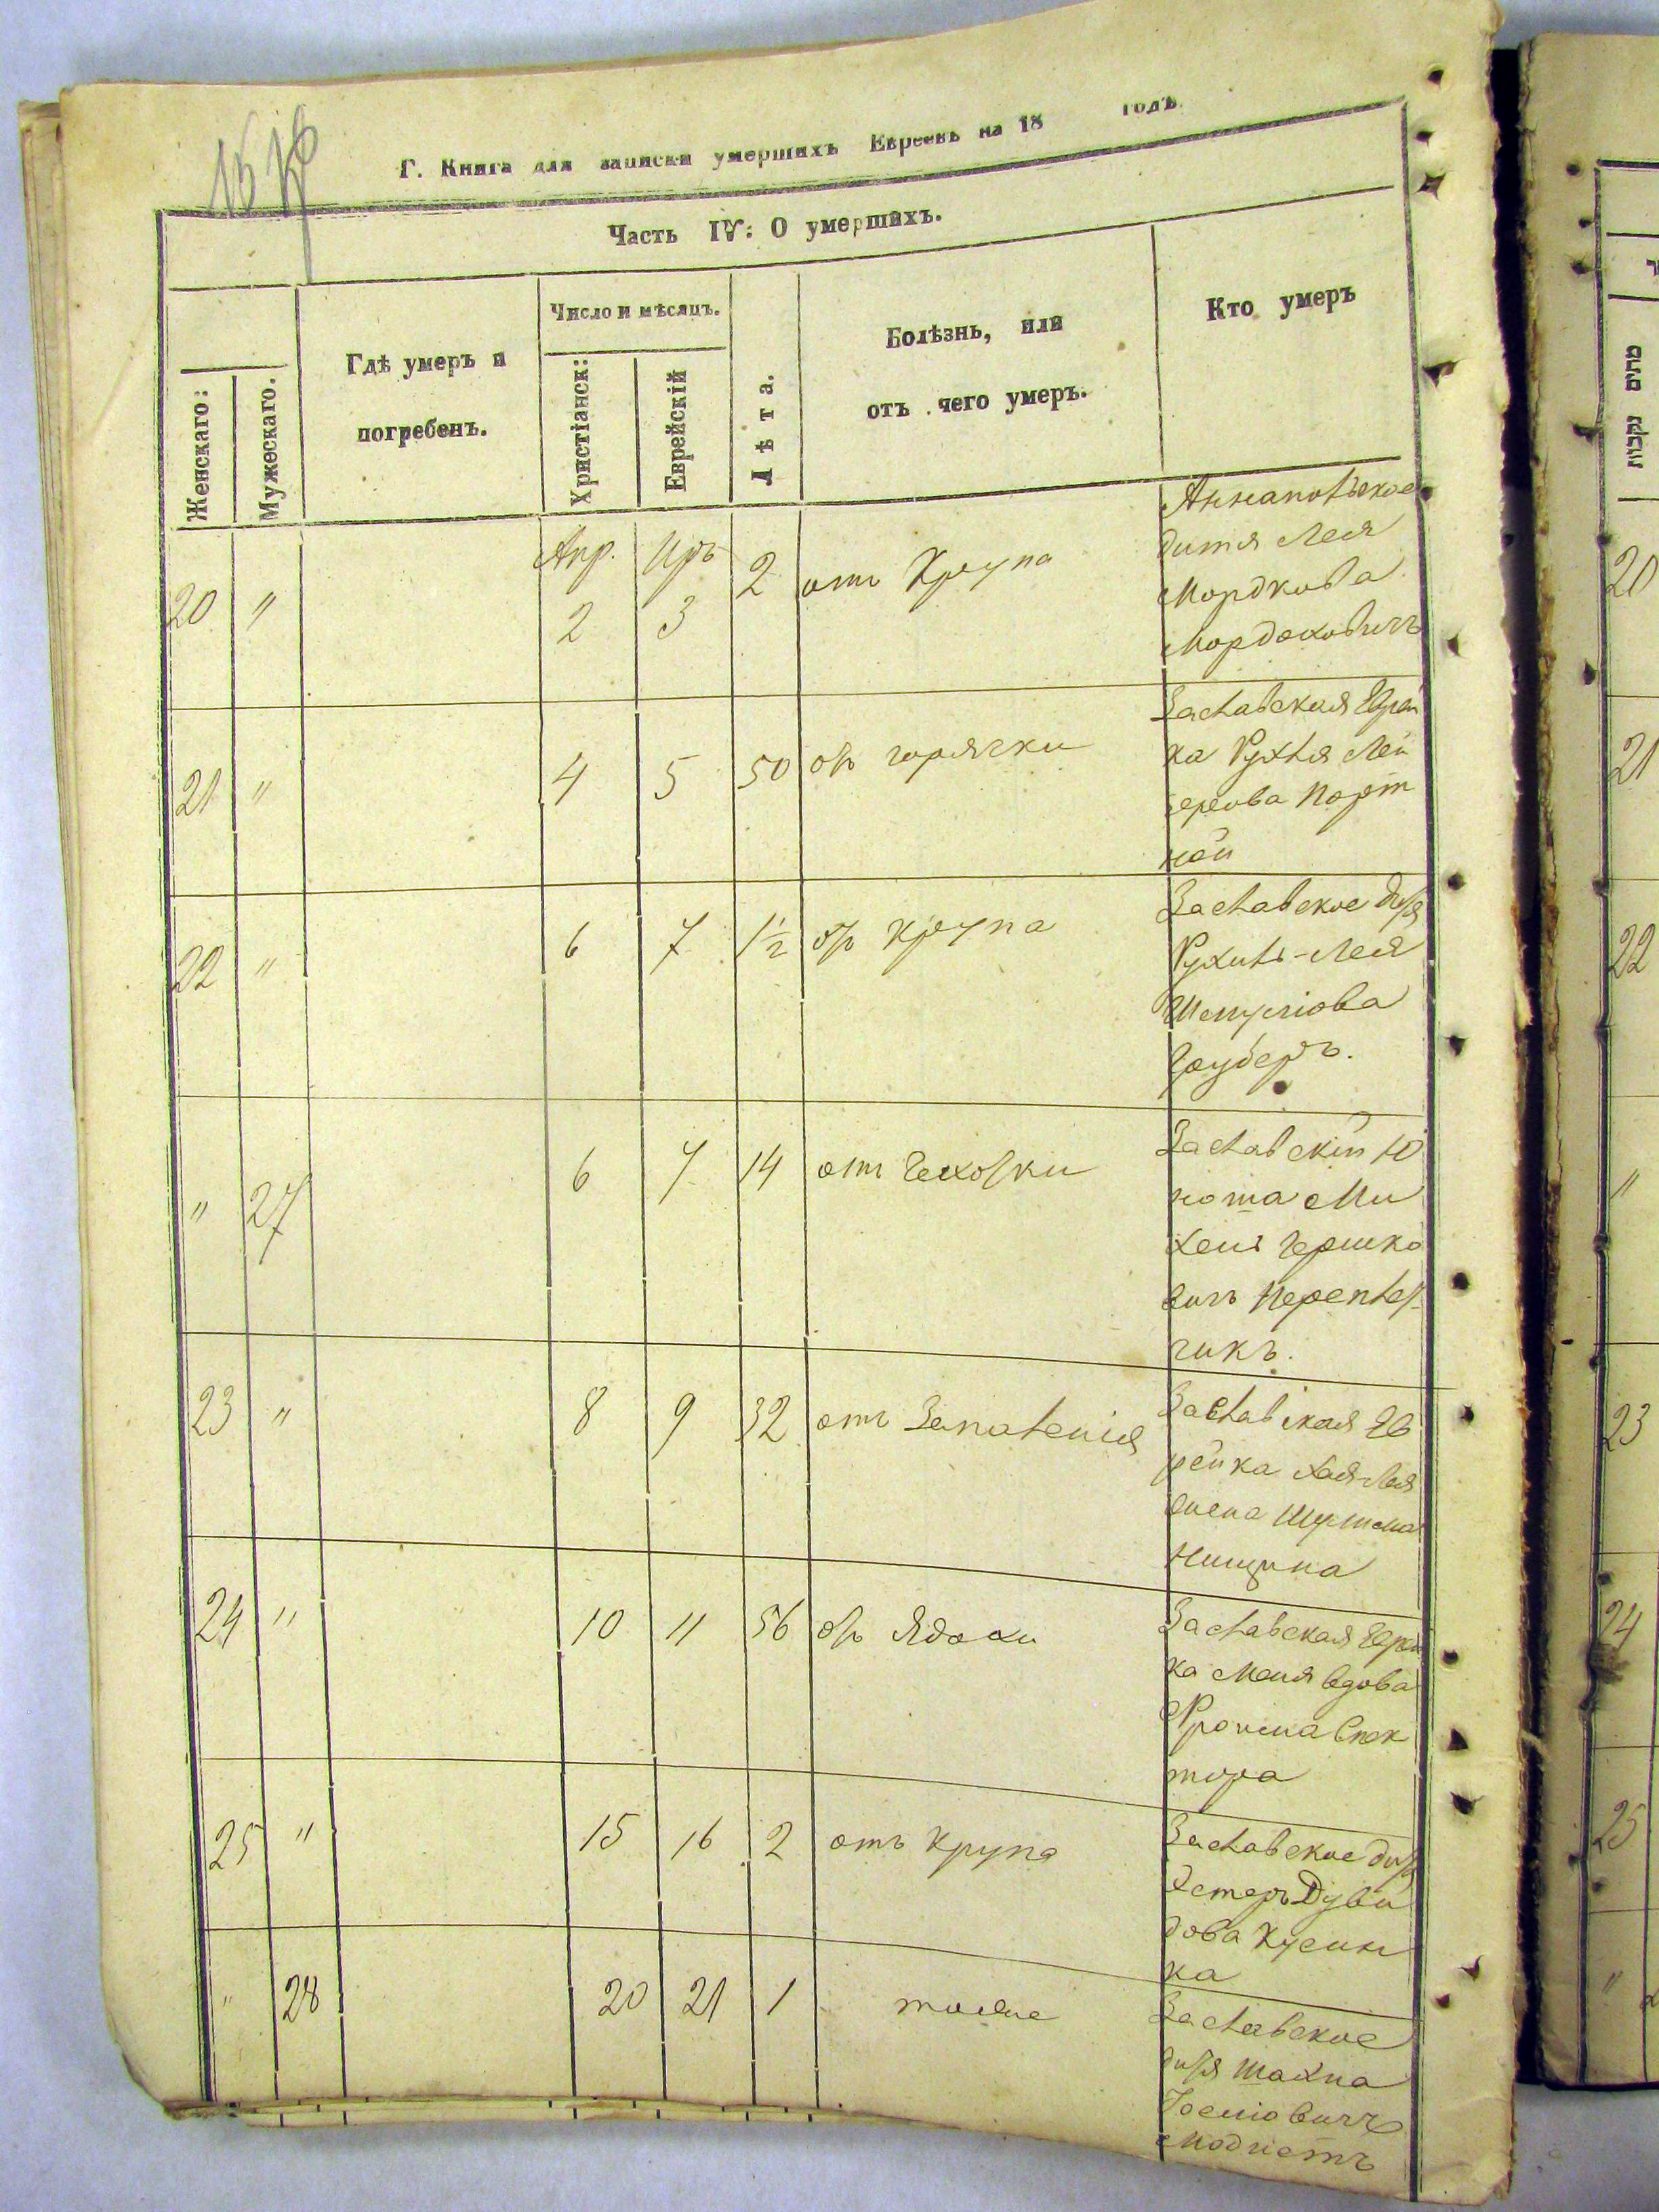 Г. Книга для записки умершихъ Евреевъ на 18 годъ.
Часть IV: О умершихъ.
Женскаго:
Мужескаго.
Гдѣ умеръ и
погребенъ.
Число и мѣсяцъ.
Христіанск:
Еврейскій
Лѣта.
Болѣзнь, или
отъ чего умеръ.
Кто умеръ
20 " Апр. 2 Иръ 3 2 отъ Крупа
Аннапольское
дитя Лея
Мордкова
Мордоховичъ
21 " 4 5 50 отъ горячки
Заславская Еврей
ка Рухля Лей
зерова Порт
ной
22 " 6 7 1½ отъ крупа
Заславское дитя
Рухль-Лея
Шмулiова
Грауберъ.
" 27 6 7 14 отъ Чехотки
Заславскій Ю
ноша Ми
хель Гершко
вичъ Переплет
чикъ.
23 " 8 9 32 отъ Запаленія
Заславская Ев
рейка Хая-Лея
жена Шулима
24 " 10 11 56 отъ Ядохи
Заславская Еврей
ка Меня вдова
Фроима Спек
тора
25 " 15 16 2 отъ крупа
Заславское дитя
Эстеръ Дуви
дова Кусин
ка
" 28 20 21 1 тоже
Заславское
дитя Шахна
Іосіовичъ
מתים נקבות
20
21
22
"
23
24
25
"